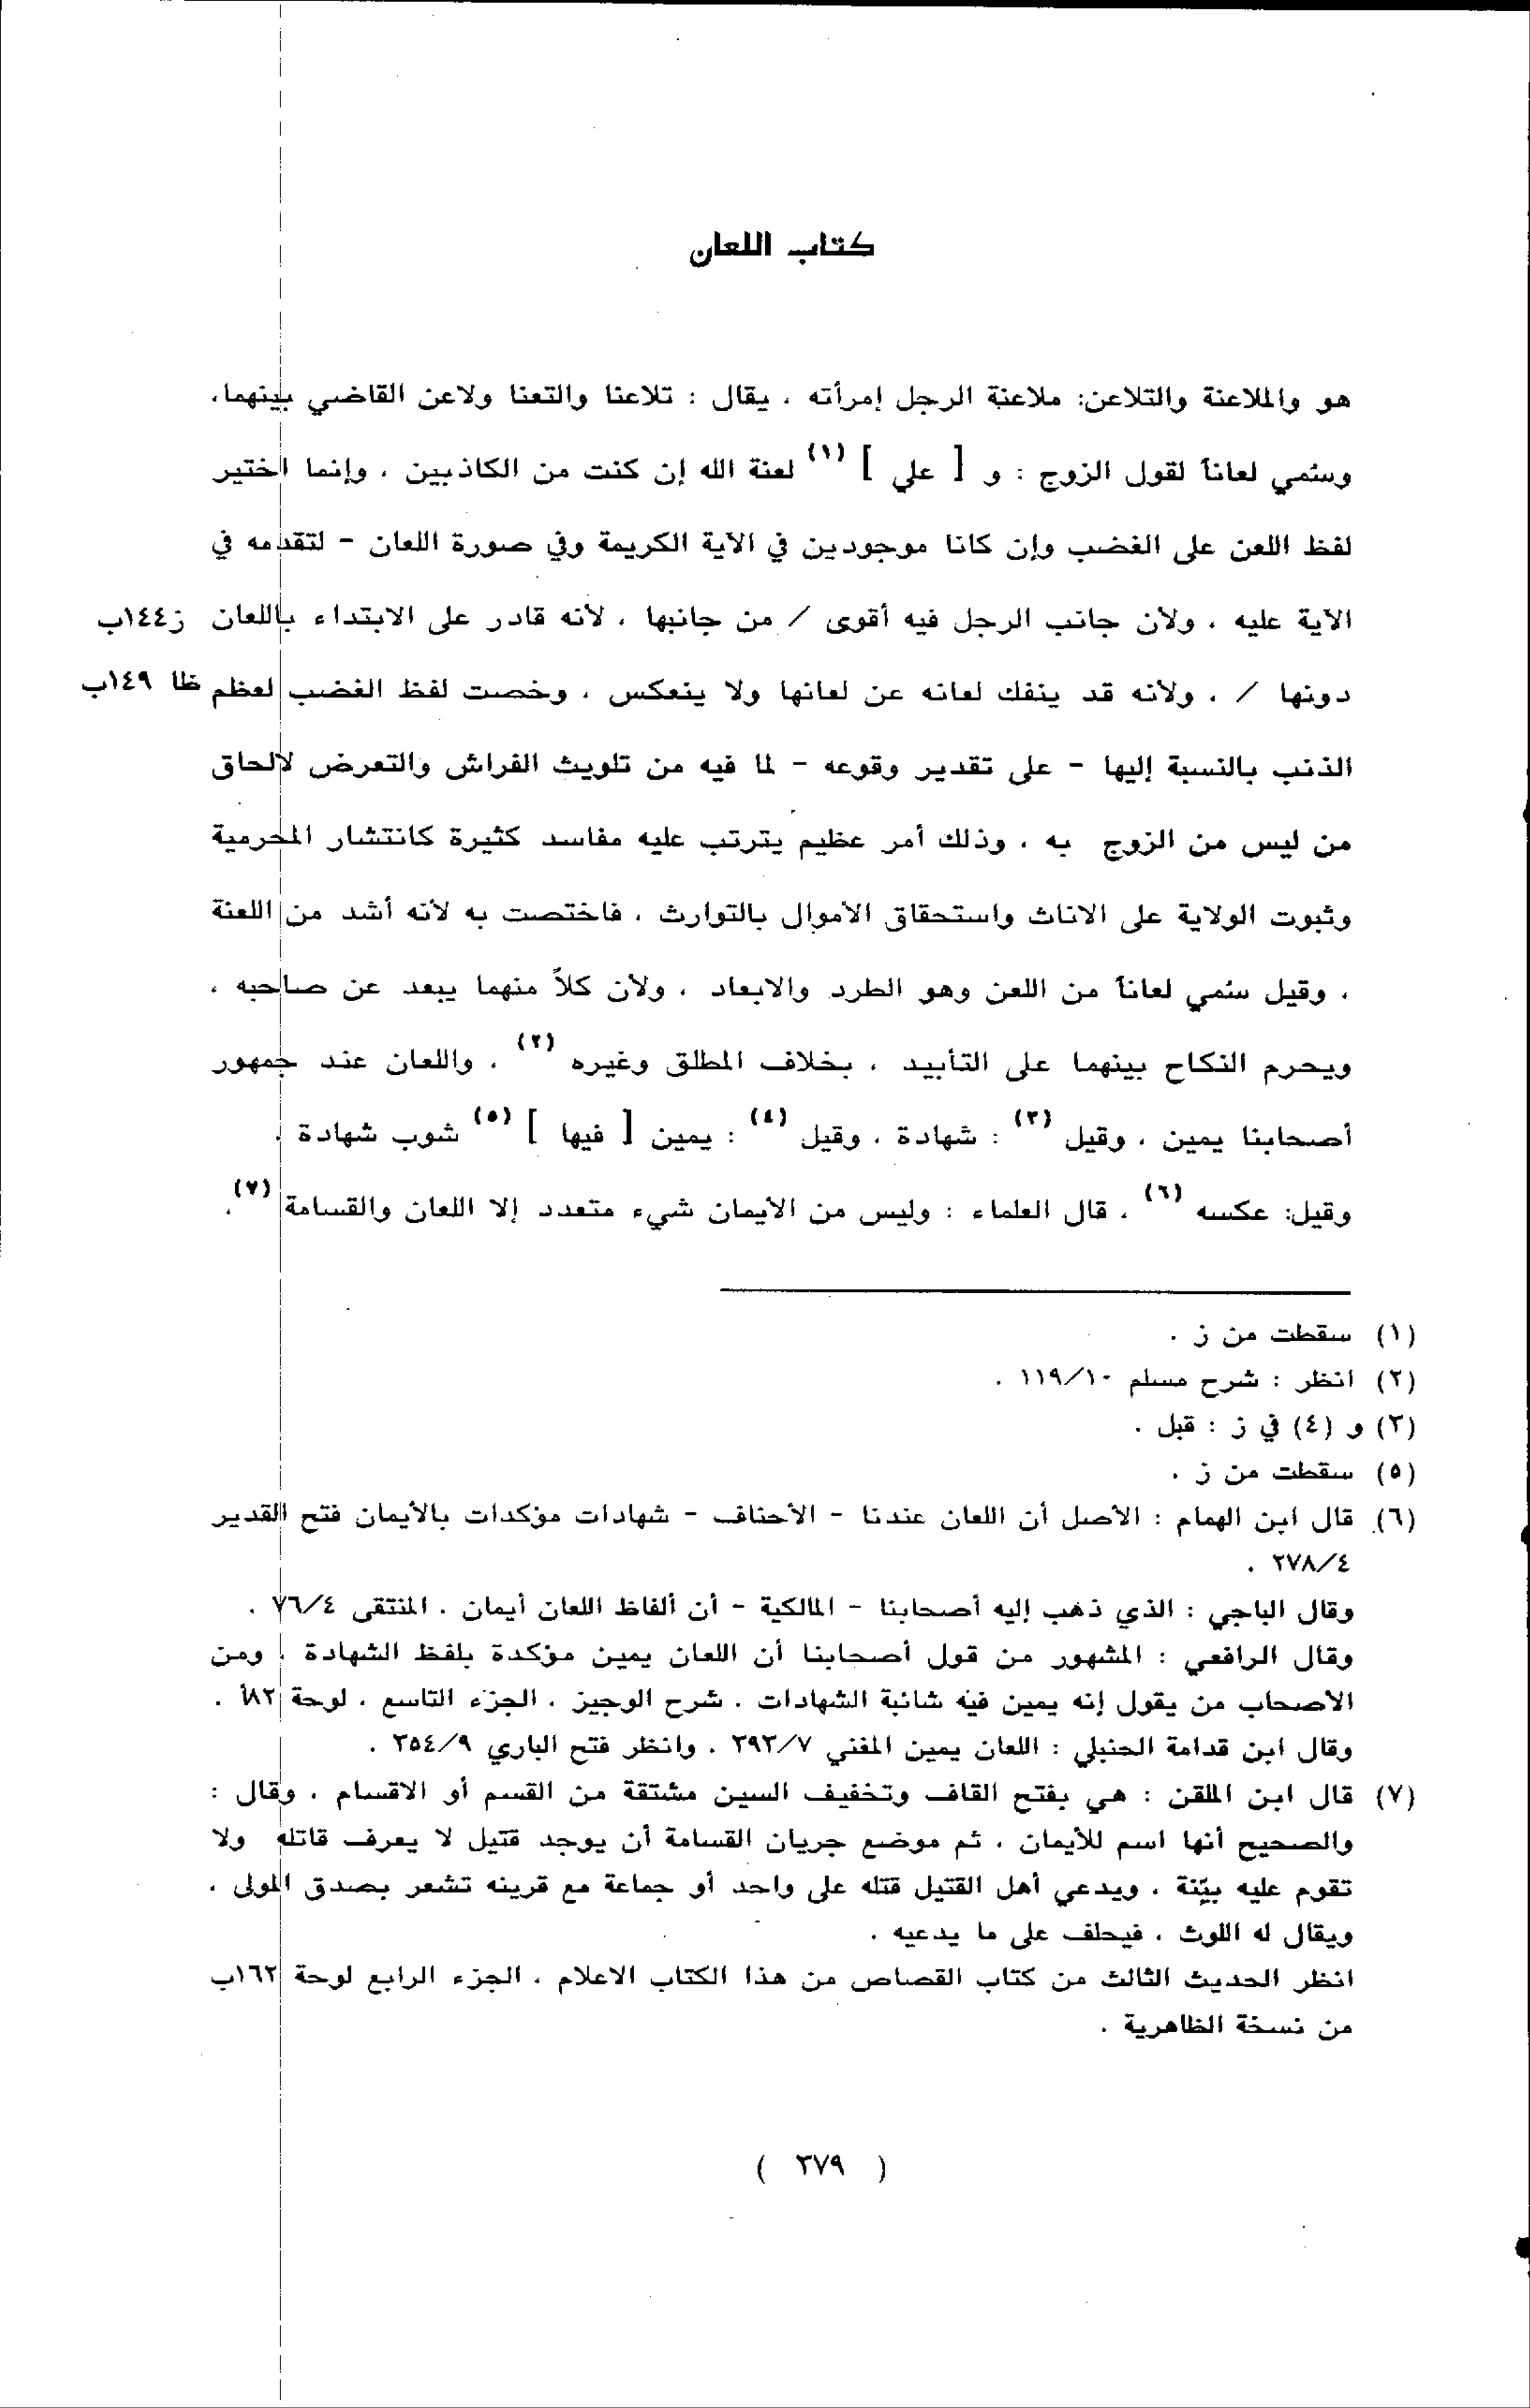 كتاب اللعان
هو والملاعنة والتلاعن: ملاعنة الرجل إمرأته ، يقال : تلاعنا والتعنا ولاعن القاضي بينهما،
وسُمي لعاناً لقول الزوج : و [ علي ] (١) لعنة الله إن كنت من الكاذبين ، وإنما اختير
لفظ اللعن على الغضب وإن كانا موجودين في الآية الكريمة وفي صورة اللعان - لتقدمه في
الآية عليه ، ولأن جانب الرجل فيه أقوى / من جانبها ، لأنه قادر على الابتداء باللعان ز١٤٤ب
دونها / ، ولأنه قد ينفك لعانه عن لعانها ولا ينعكس ، وخصت لفظ الغضب لعظم ظا ١٤٩ب
الذنب بالنسبة إليها - على تقدير وقوعه - لما فيه من تلويث الفراش والتعرض لالحاق
من ليس من الزوج به ، وذلك أمر عظيم يترتب عليه مفاسد كثيرة كانتشار المحرمية
وثبوت الولاية على الاناث واستحقاق الأموال بالتوارث ، فاختصت به لأنه أشد من اللعنة
، وقيل سُمي لعاناً من اللعن وهو الطرد والابعاد ، ولأن كلاً منهما يبعد عن صاحبه ،
ويحرم النكاح بينهما على التأبيد ، بخلاف المطلق وغيره (٢) ، واللعان عند جمهور
أصحابنا يمين ، وقيل (٣) : شهادة ، وقيل (٤) : يمين [ فيها ] (٥) شوب شهادة .
وقيل: عكسه (٦) ، قال العلماء : وليس من الأيمان شيء متعدد إلا اللعان والقسامة (٧).
(١) سقطت من ز .
(٢) انظر : شرح مسلم ١١٩/١٠ .
(٣) و (٤) في ز : قبل .
(٥) سقطت من ز .
(٦) قال ابن الهمام : الأصل أن اللعان عندنا - الأحناف - شهادات مؤكدات بالأيمان فتح القدير
٢٧٨/٤ .
وقال الباجي : الذي ذهب إليه أصحابنا - المالكية - أن ألفاظ اللعان أيمان . المنتقى ٧٦/٤ .
وقال الرافعي : المشهور من قول أصحابنا أن اللعان يمين مؤكدة بلفظ الشهادة ، ومن
الأصحاب من يقول إنه يمين فيه شائبة الشهادات . شرح الوجيز ، الجزء التاسع ، لوحة ٨٢أ .
وقال ابن قدامة الحنبلي : اللعان يمين المغني ٣٩٢/٧ . وانظر فتح الباري ٣٥٤/٩ .
(٧) قال ابن الملقن : هي بفتح القاف وتخفيف السين مشتقة من القسم أو الاقسام ، وقال :
والصحيح أنها اسم للأيمان ، ثم موضع جريان القسامة أن يوجد قتيل لا يعرف قاتله ولا
تقوم عليه بيّنة ، ويدعي أهل القتيل قتله على واحد أو جماعة مع قرينه تشعر بصدق المولى ،
ويقال له اللوث ، فيحلف على ما يدعيه .
انظر الحديث الثالث من كتاب القصاص من هذا الكتاب الاعلام ، الجزء الرابع لوحة ١٦٢ب
من نسخة الظاهرية .
( ٣٧٩ )